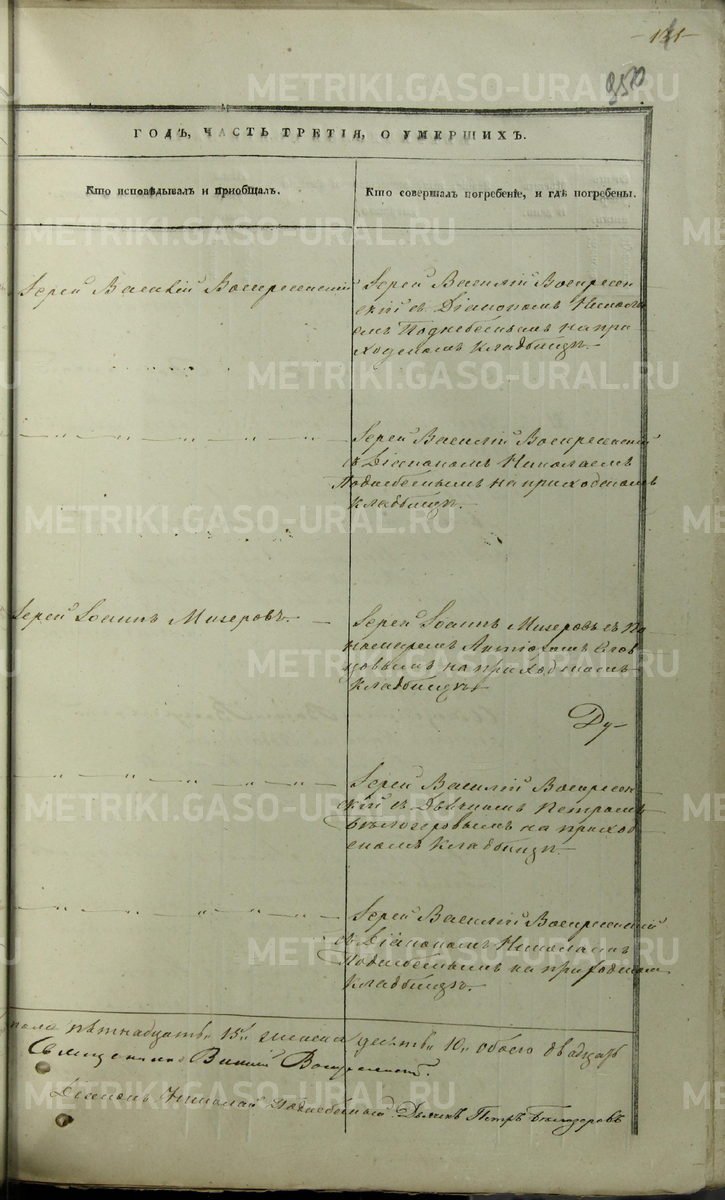 131
350
ГОДЪ, ЧАСТЬ ТРЕТІЯ, О УМЕРШИХЪ.
Кто исповѣдывалъ и пріобщалъ.
Кто совершалъ погребеніе, и гдѣ погребены.
Іерей Василій Воскресенскій
Іерей Василій Воскресен
скій съ Діакономъ Никола
емъ Поднебеснымъ на при
ходскомъ кладбищѣ.
Іерей Василій Воскресенскій
съ Діакономъ Николаемъ
Поднебеснымъ на приходскомъ
кладбищѣ.
Іерей Іоаннъ Мизеровъ.
Іерей Іоаннъ Мизеровъ съ По
номаремъ
на приходскомъ
кладбищѣ
Ду-
Іерей Василій Воскресен
скій съ Дьячкомъ Петромъ
на приход
скомъ кладбищѣ
Іерей Василій Воскресенскій
съ Діакономъ Николаемъ
Поднебеснымъ на приходском
кладбищѣ.
пола пятнадцать 15ть женска десять 10ть обоего двадцать
Священникъ Василій Воскресенскій.
Діаконъ Николай Поднебесный. Дьячекъ Петръ
METRIKI.GASO-URAL.RU